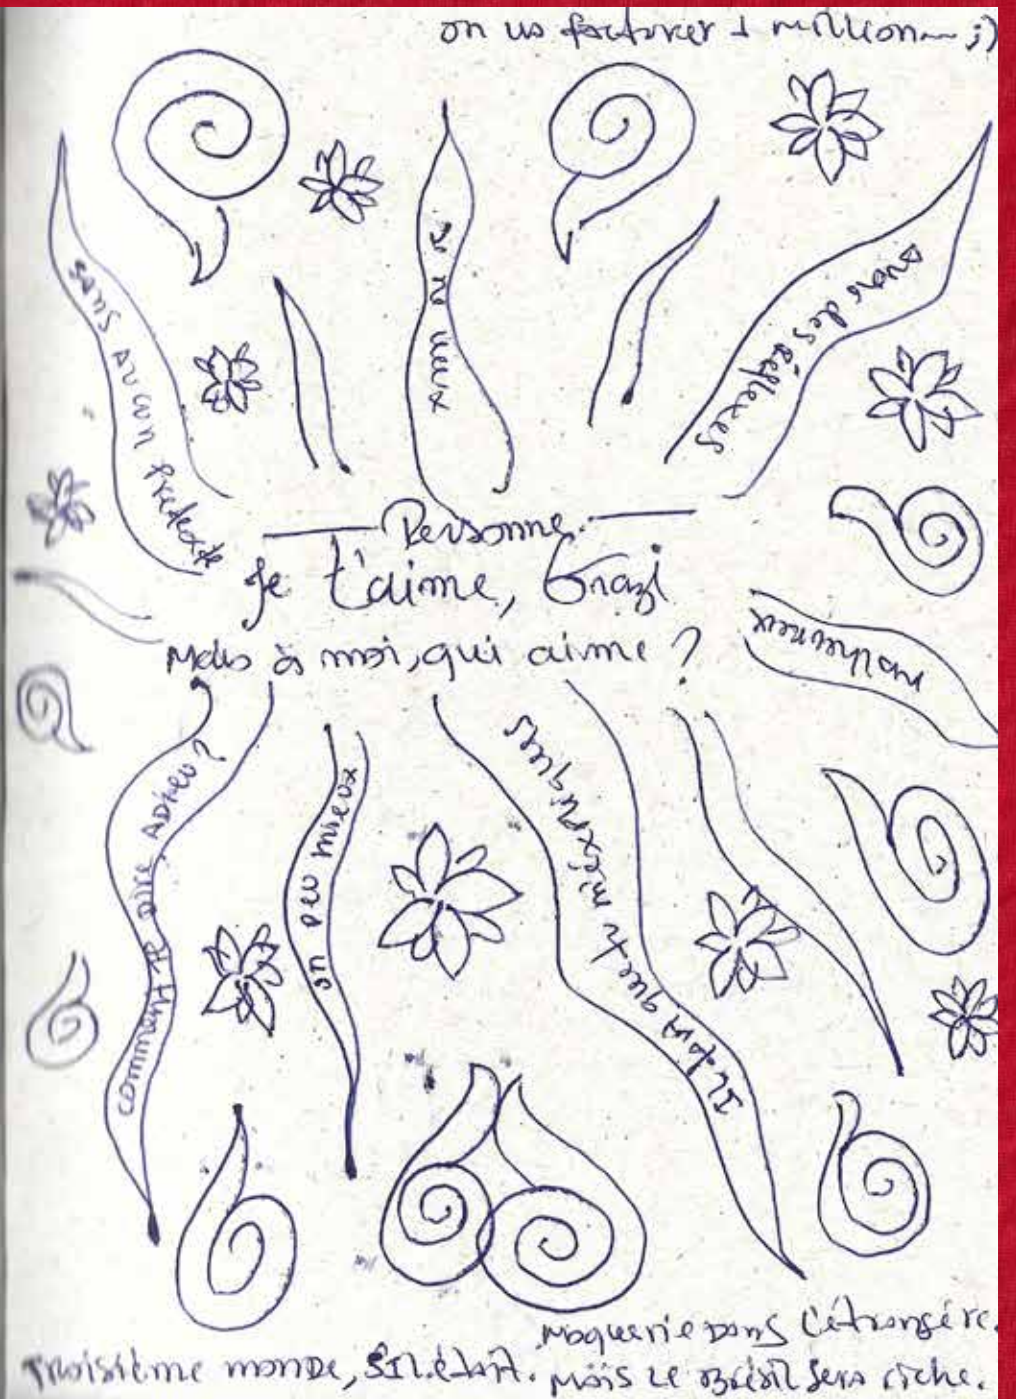 on va facturer 1 million ;)
sans aucun pretexte
Je ne veux
avoir des réflexes
Personne.
Je t'aime, Grazi
Mais à moi, qui aime ?
malheureux
comment te dire adieu ?
un peu mieux
Il faut que tu m'éxpliques
Moquerie dans l'étrangère.
Troisième monde, s'il était. Mais le Brésil sera riche.